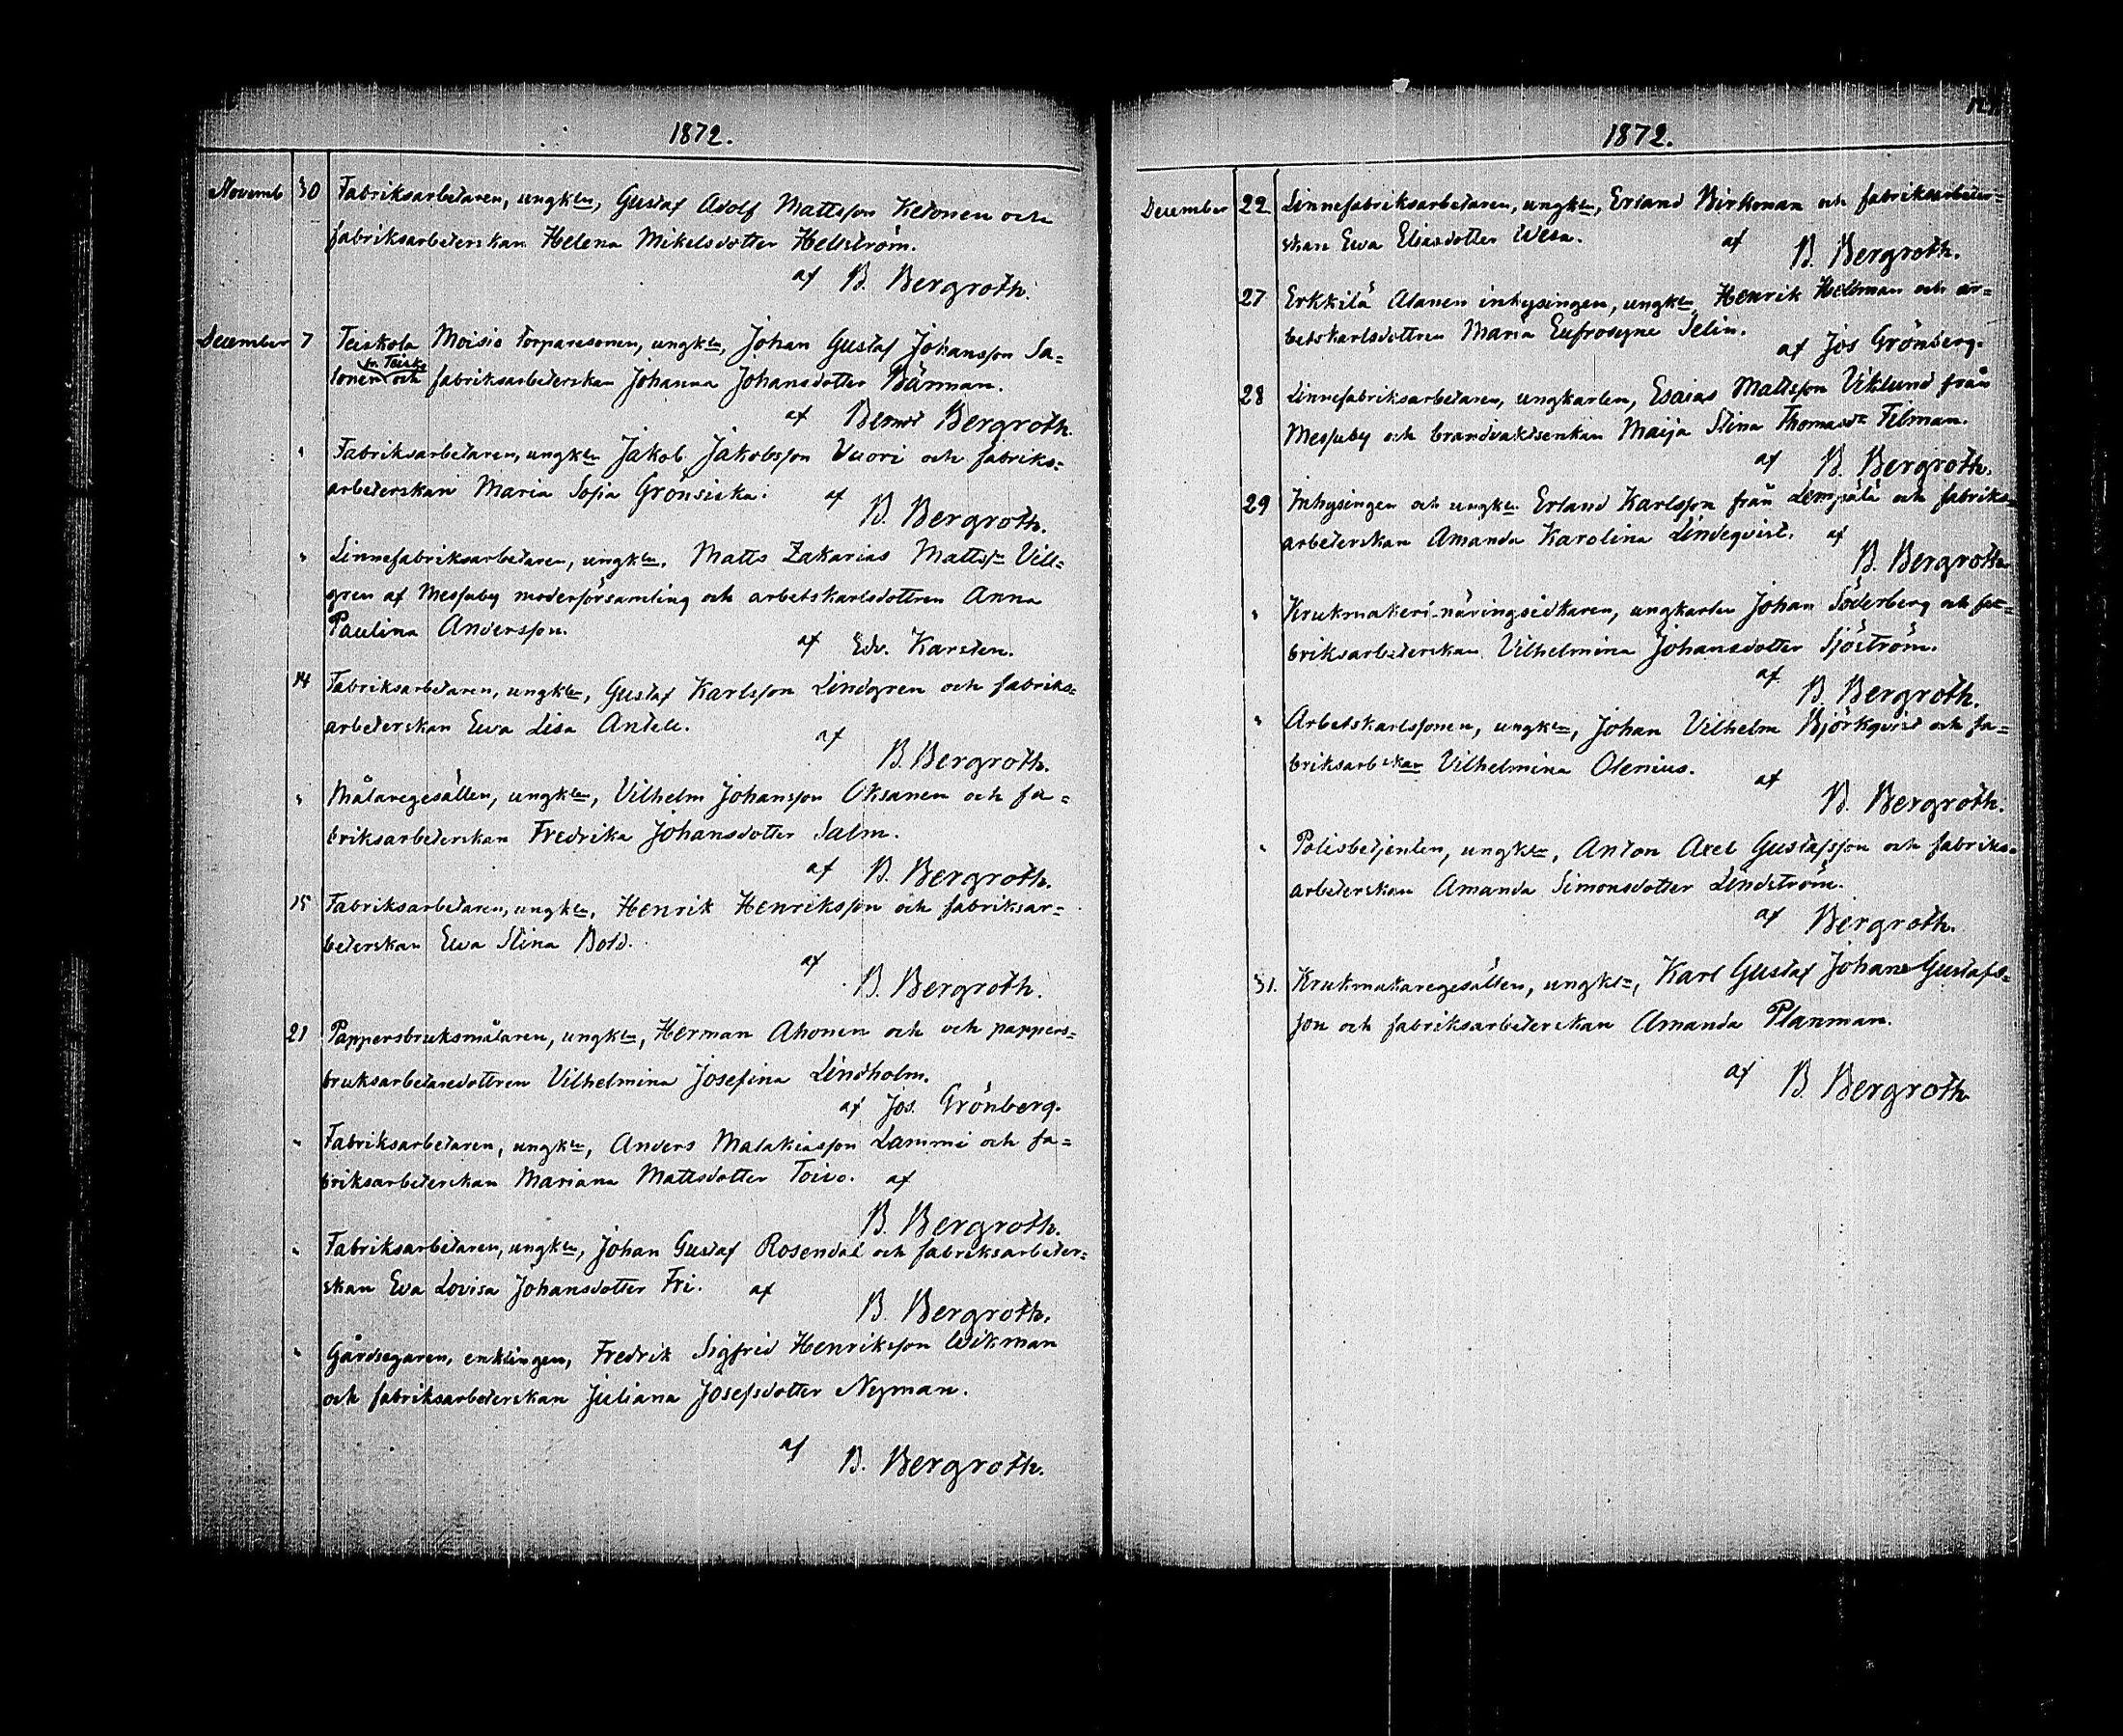 1872.
Novemb 30 Fabriksarbetaren, ungkln, Gustaf Adolf Mattsson Ketonen och
fabriksarbeterskan Helena Mikelsdotter Hellström.
af B. Bergroth.
December 7 Teiskola Moisio torparesonen, ungkln, Johan Gustaf Johansson Sa=
fn Teisko
lonen och fabriksarbeterskan Johanna Johansdotter Bärman.
af Bernt Bergroth.
" Fabriksarbetaren, ungkln Jakob Jakobsson Vuori och fabriks=
arbeterskan Maria Sofia Grönsiska. af
B. Bergroth.
" Linnefabriksarbetaren, ungkln, Matts Zakarias Mattsn Vill=
gren af Messuby moderförsamling och arbetskarlsdottren Anna
Paulina Andersson.
af Edv. Karsten.
14 Fabriksarbetaren, ungkln, Gustaf Karlsson Lindgren och fabriks=
arbeterskan Ewa Lisa Antell.
af
B. Bergroth.
" Målaregesällen, ungkln, Vilhelm Johansson Oksanen och fa=
briksarbeterskan Fredrika Johansdotter Salm.
af B. Bergroth.
15 Fabriksarbetaren, ungkln, Henrik Henriksson och fabriksar=
beterskan Ewa Stina Bold.
af
B. Bergroth.
21 Pappersbruksmålaren, ungkln, Herman Ahonen och och pappers=
bruksarbetaredottren Vilhelmina Josefina Lindholm.
af Jos. Grönberg.
" Fabriksarbetaren, ungkln, Anders Malakiasson Lammi och fa=
briksarbeterskan Mariana Mattsdotter Toivo. af
B. Bergroth.
" Fabriksarbetaren, ungkln, Johan Gustaf Rosendal och fabriksarbeter=
skan Eva Lovisa Johansdotter Fri. af
B. Bergroth.
" Gårdsegaren, enklingen, Fredrik Sigfrid Henriksson Wikman
och fabriksarbeterskan Juliana Josefsdotter Nyman.
af B. Bergroth.
1872.
December 22 Linnefabriksarbetaren, ungkln, Erland Birkman och fabriksarbeter=
skan Ewa Eliasdotter Wesa. af
B. Bergroth.
27 Erkkilä Alanen inhysingen, ungkln, Henrik Hellman och ar=
betskarlsdottren Maria Eufrosyne Selin.
af Jos Grönberg.
28 Linnefabriksarbetaren, ungkarlen, Esaias Mattsson Viklund från
Messuby och brandvaktsenkan Maija Stina Thomasdr Filman.
af B. Bergroth.
29 Inhysingen och ungkln Erland Karlsson från Lempälä och fabriks=
arbeterskan Amanda Karolina Lindeqvist. af
B. Bergroth
" Krukmakeri-näringsidkaren, ungkarlen Johan Söderberg och fa=
briksarbeterskan Vilhelmina Johansdotter Sjöström.
af
B. Bergroth.
" Arbetskarlssonen, ungkln, Johan Vilhelm Björkqvist och fa=
briksarbskan Vilhelmina Olenius.
af
B. Bergroth.
" Polisbetjenten, ungkln, Anton Axel Gustafsson och fabriks=
arbeterskan Amanda Simonsdotter Lindström.
af Bergroth.
31. Krukmakaregesällen, ungkln, Karl Gustaf Johans Gustafs=
son och fabriksarbeterskan Amanda Planman.
af B. Bergroth